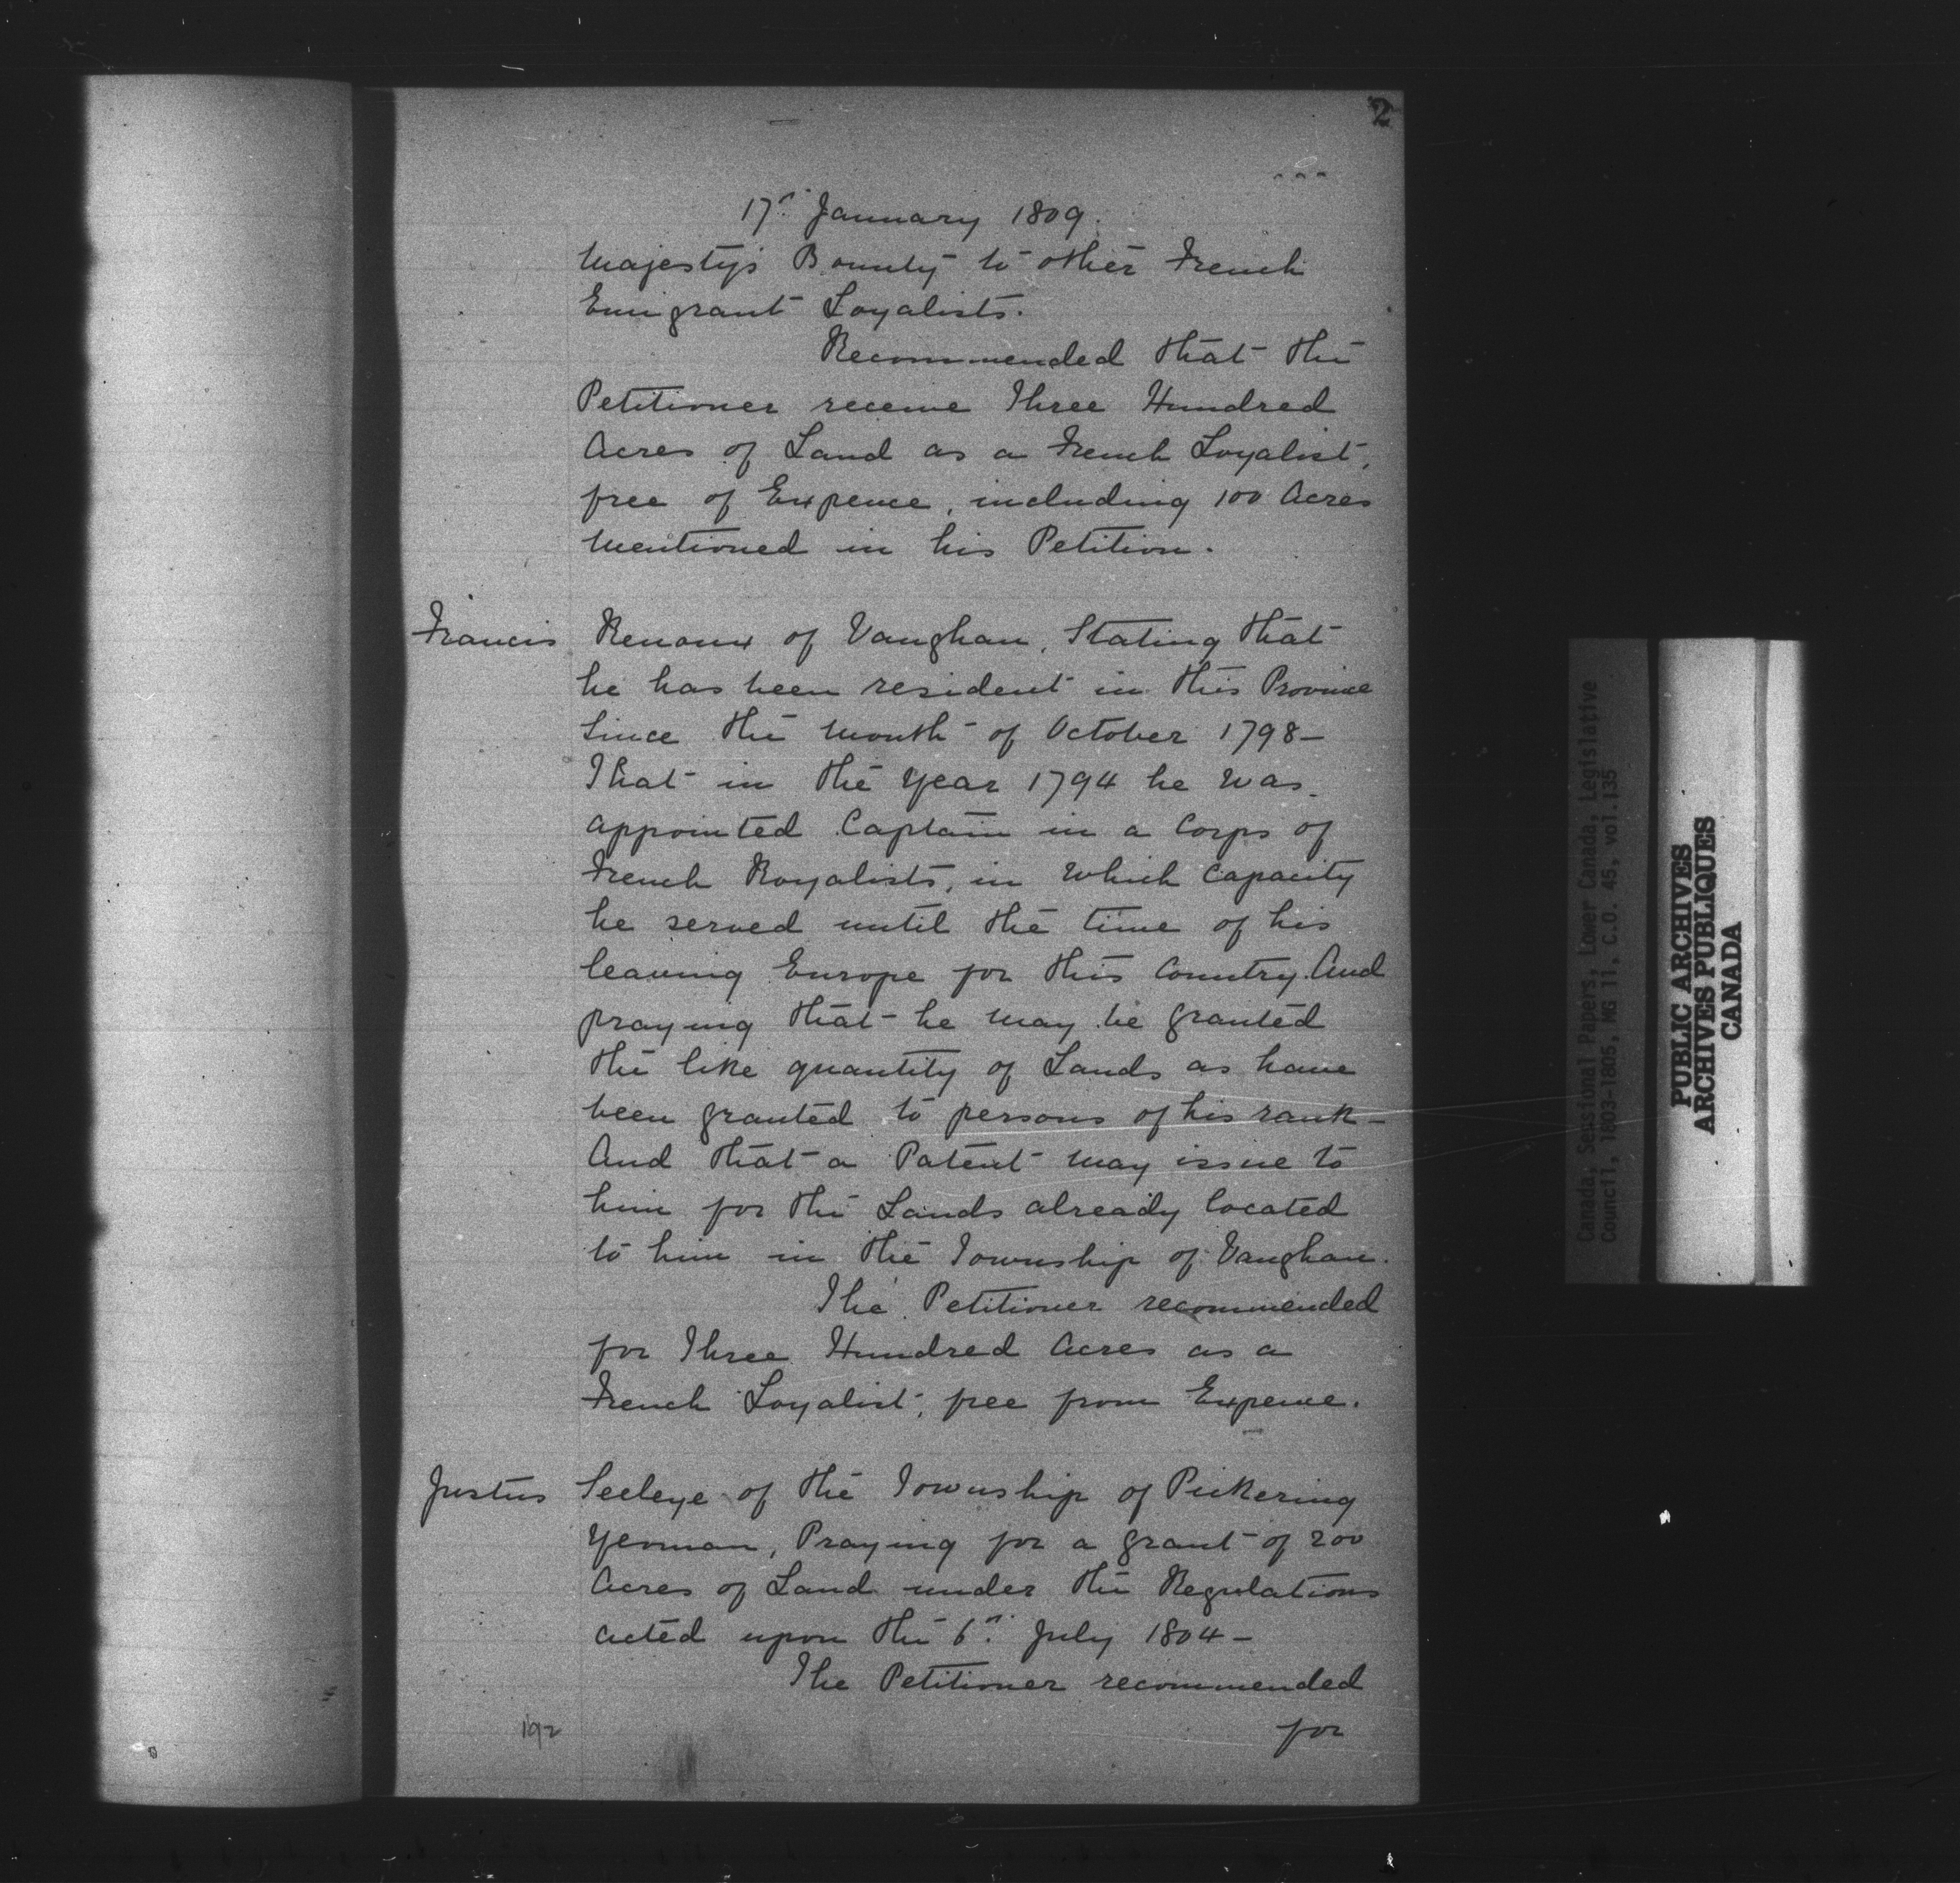 2
17th January 1809.
Majesty's Bounty to other French
Emigrant Loyalists.
Recommended that the
Petitioner receive Three Hundred
Acres of Land as a French Loyalist,
free of Expence, including 100 Acres
mentioned in his Petition.
Francis Renoux of Vaughan, Stating that
he has been resident in this Province
Since the month of October 1798—
That in the Year 1794 he was
appointed Captain in a Corps of
French Royalists, in which capacity
he served until the time of his
leaving Europe for this Country. And
praying that he may be granted
the like quantity of Lands as have
been granted to persons of his rank—
And that a Patent may issue to
him for the Lands already located
to him in the Township of Vaughan.
The Petitioner recommended
for Three Hundred Acres as a
French Loyalist, free from Expence.
Justus Seeleye of the Township of Pickering
Yeoman, Praying for a grant of 200
Acres of Land under the Regulations
acted upon the 6th July 1804—
The Petitioner recommended
for
192
Canada, Sessional Papers, Lower Canada, Legislative
Council, 1803-1805, MG 11, C.O. 45, vol.135
PUBLIC ARCHIVES
ARCHIVES PUBLIQUES
CANADA